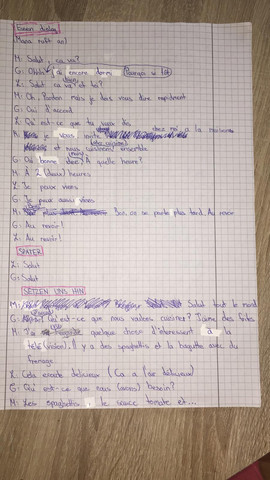 Maxa ruft an!
M: Salut, ça va?
G: j'ai encore dormi
Z: Salut ça va? et toi?
M: Oh, Pardon mais je dois vous dire rapidment
G: Oui d'accord
Z: Qu'est-ce que tu veux
je vous invite chez moi a la maison
et nous cuisinons ensemble
G: bonne idée! À quelle heure?
M: À 2 (deux) heures
Z: Je peux viens
G: Je peux aussi viens
M: Bon, on se parle plus tard. Au revoir
G: Au revoir!
Z: Au revoir!
SPÄTER
Z: Salut
G: Salut
SETZEN UNS HIN
M: Salut tout le mond
G: Qu'est-ce que nous cuisinez? J'aime des frites
M: J'ai quelque chose d'interessent à la
télé(vision). Il y a des spaghettis et la baguette avec du
fromage
Z: Cela délicieux (Ça a l'air délicieux)
G: Qu'est-ce que nous (avons) besoin?
M: Les spaghettis, le sauce tomate et...